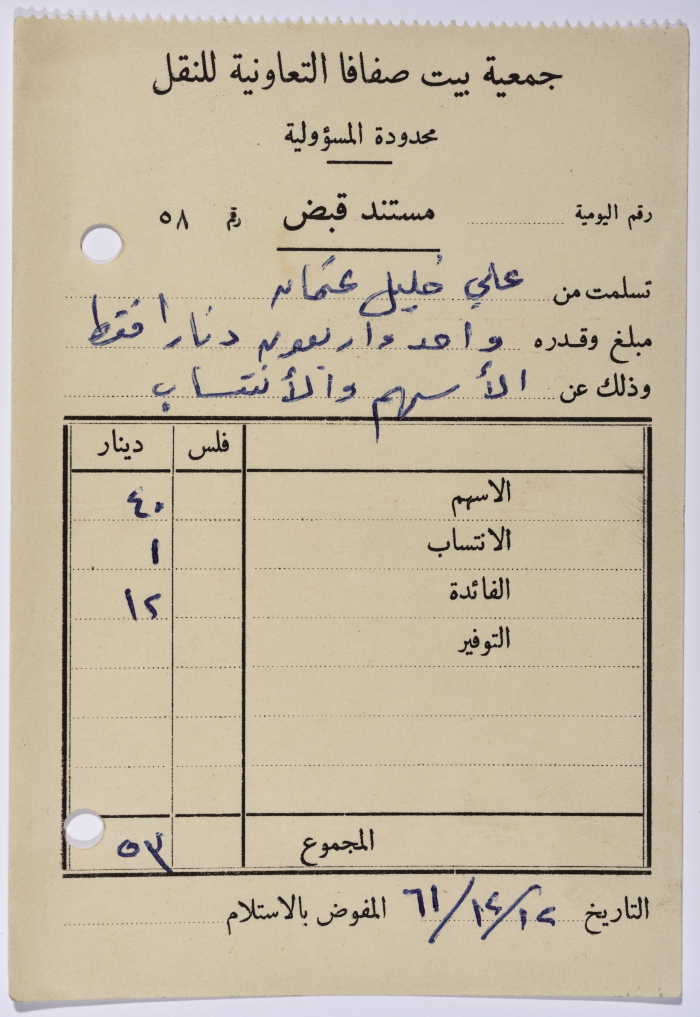 جمعية بيت صفافا التعاونية للنقل
محدودة المسؤولية
رقم اليومية مستند قبض رقم ٥٨
تسلمت من علي خليل عثمان
مبلغ وقدره واحد واربعون دنارا فقط
وذلك عن الأسهم والأنتساب
فلس دينار
الاسهم ٤٠
الانتساب ١
الفائدة ١٢
التوفير
المجموع ٥٣
التاريخ ٦١/١٢/١٢ المفوض بالاستلام